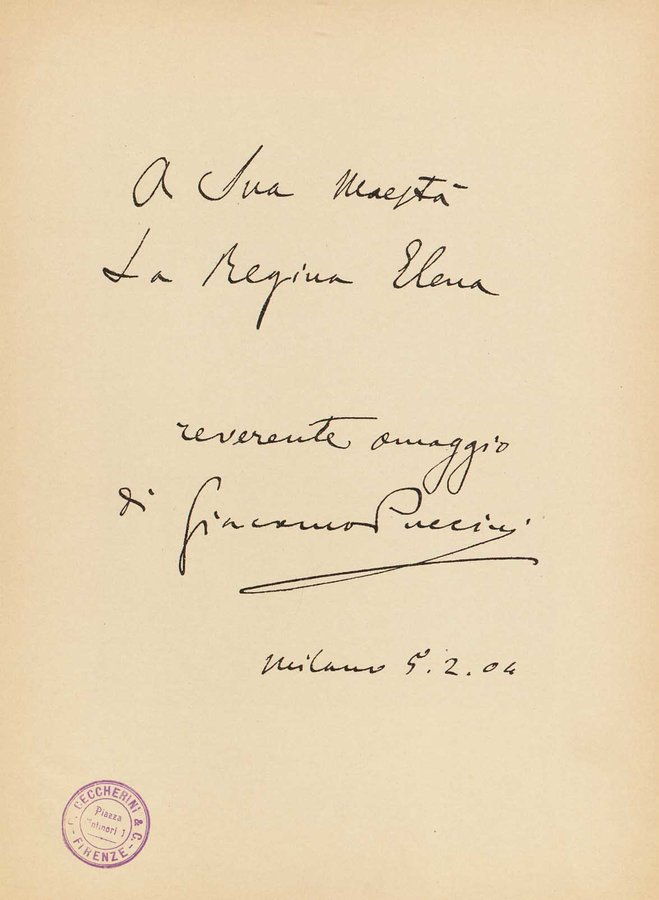 A Sua Maestà
La Regina Elena
reverente omaggio
di Giacomo Puccini
Milano 5.2.04
CECCHERINI & C.
Piazza
Antinori 1
FIRENZE